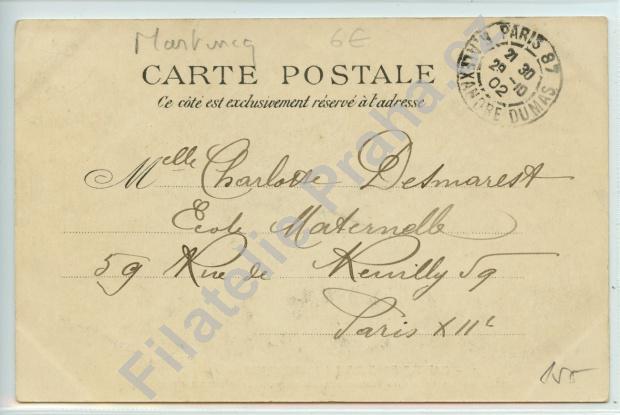 Martinıq 6€
CARTE POSTALE
Ce côté est exclusivement réservé à l'adresse
PARIS 87
21 30
28 -10
02
ALEXANDRE DUMAS
Melle Charlotte Desmarest
Ecole Maternelle
59 Rue de Reuilly 59
Paris XIIe
155
Filatelie Praha.cz